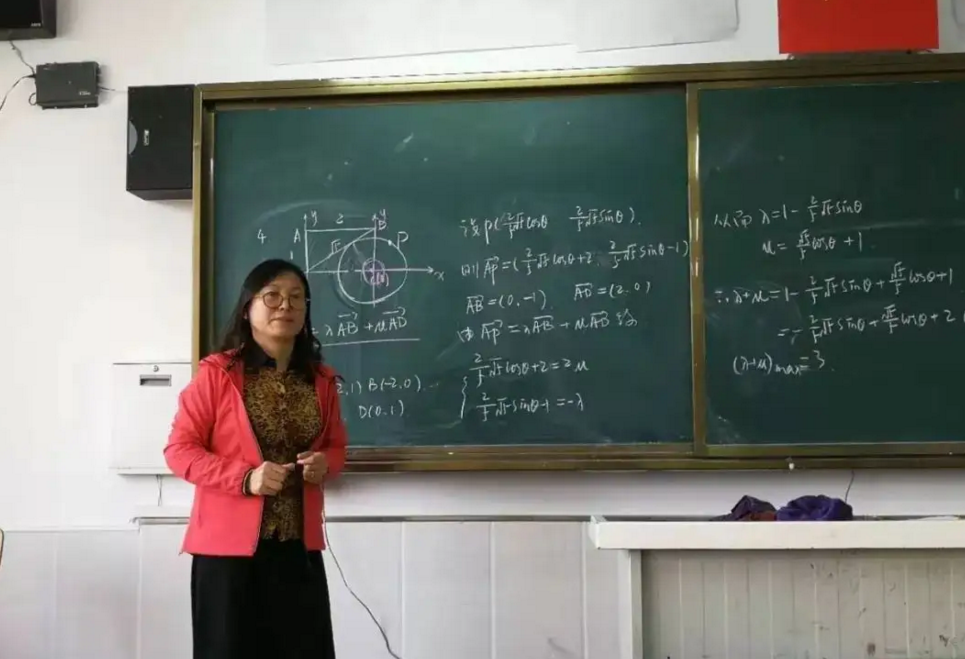 4
y 2 y
A B P
√5
x
= λAB⃗ + μAD⃗
2,1) B(-2,0)
D(0,1)
设 P(2/5√5cosθ 2/5√5sinθ).
则 AP⃗=(2/5√5cosθ+2, 2/5√5sinθ-1)
AB⃗=(0,-1) AD⃗=(2,0)
由 AP⃗=λAB⃗+μAD⃗ 得
{ 2/5√5cosθ+2=2μ
2/5√5sinθ-1=-λ
从而 λ=1-2/5√5sinθ
μ=√5/5cosθ+1
∴λ+μ=1-2/5√5sinθ+√5/5cosθ+1
=-2/5√5sinθ+√5/5cosθ+2
(λ+μ)max=3.